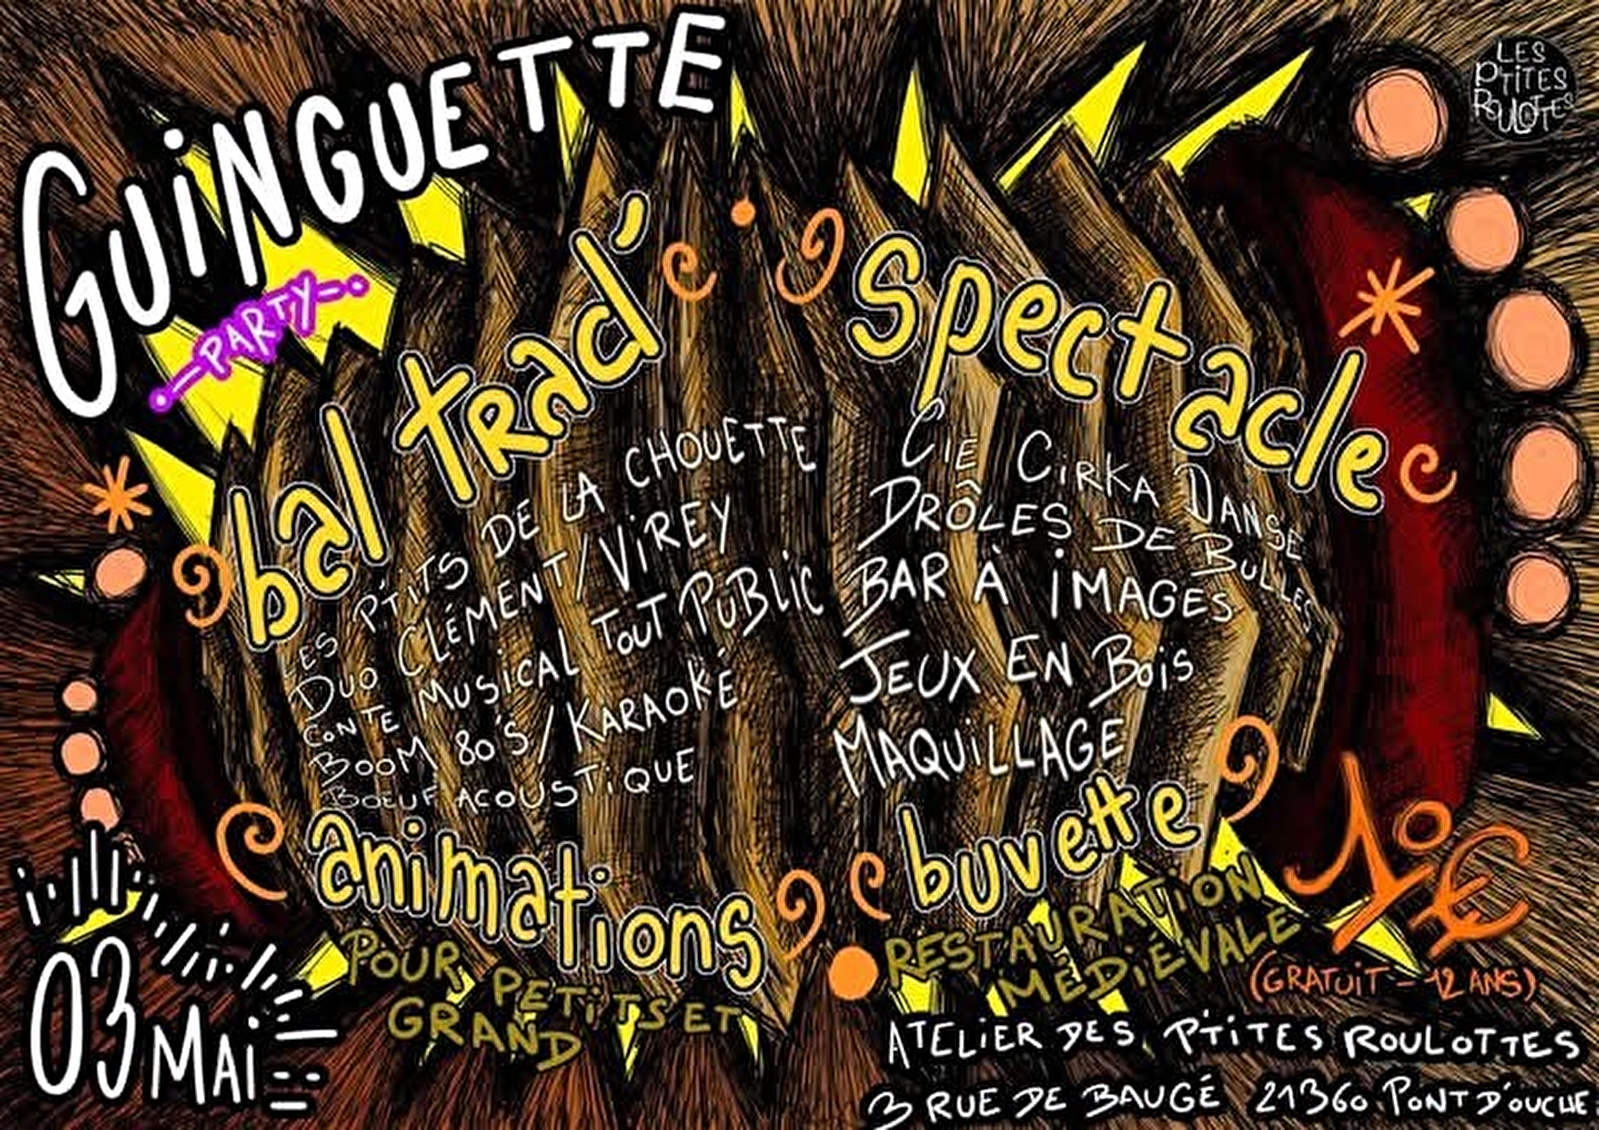 GUiNGUETTE
PARTY
LES
PTITES
ROULOTTES
bal trad'
LES PTITS DE LA CHOUETTE
DUO CLÉMENT/ViREY
CONTE MUSiCAL TOUT PUBLiC
BOOM 80'S/KARAOKÉ
BOEUF ACOUSTiQUE
spectacle
CIE CiRKA DANSE
DRÔLES DE BULLES
BAR À iMAGES
JEUX EN BOiS
MAQUiLLAGE
animations
POUR PETiTS ET
GRAND
buvette
RESTAURATiON
MÉDIÉVALE
10€
(GRATUiT - 12 ANS)
03 MAi
ATELiER DES P'TiTES ROULOTTES
3 RUE DE BAUGÉ 21360 PONT D'OUCHE